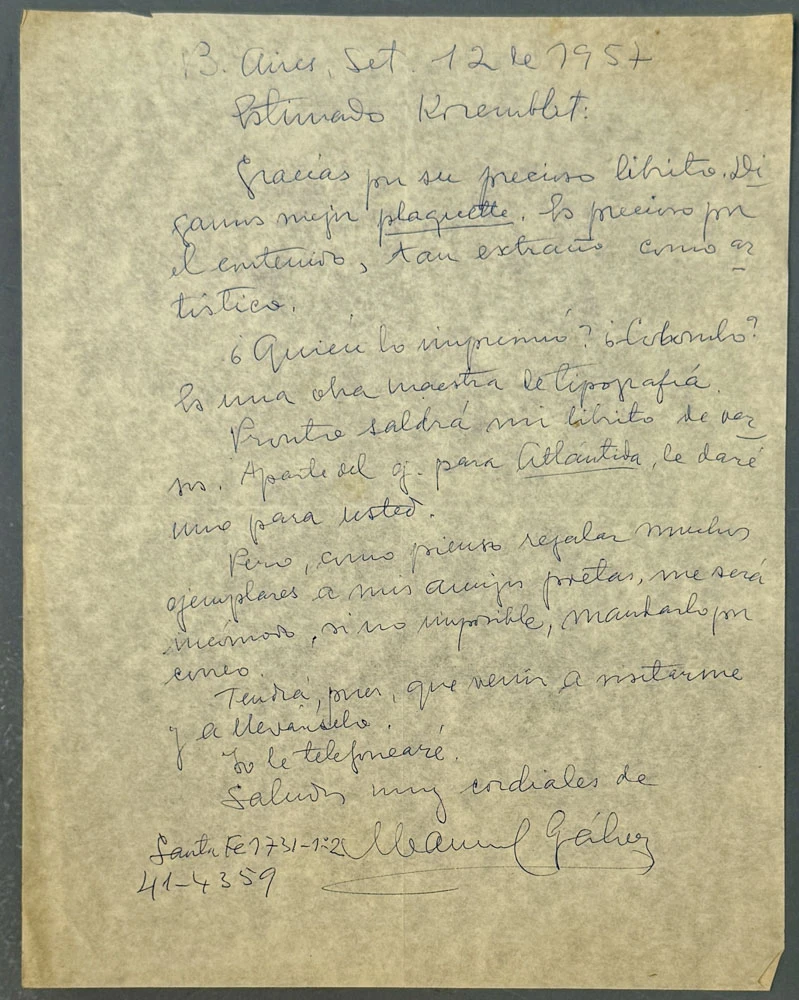 B. Aires, Set. 12 de 1957
Estimado Koremblit:
Gracias por su precioso librito. Di
gamos mejor plaquette. Es precioso por
el contenido, tan extraño como ar
tístico.
¿Quién lo imprimió? ¿Colombo?
Es una obra maestra de tipografía.
Pronto saldrá mi librito de ver
sos. Aparte del ej. para Atlántida, le daré
uno para usted.
Pero, como pienso regalar muchos
ejemplares a mis amigos poetas, me será
incómodo, si no imposible, mandarlo por
correo.
Tendrá, pues, que venir a visitarme
y a llevárselo.
Yo le telefonearé.
Saludos muy cordiales de
Manuel Gálvez
Santa Fe 1731-1º-2
41-4359